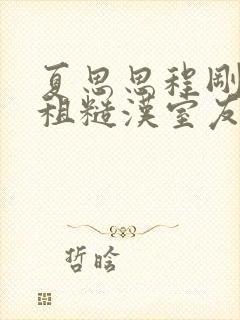 夏思思程剛
粗糙漢室友
哲晗